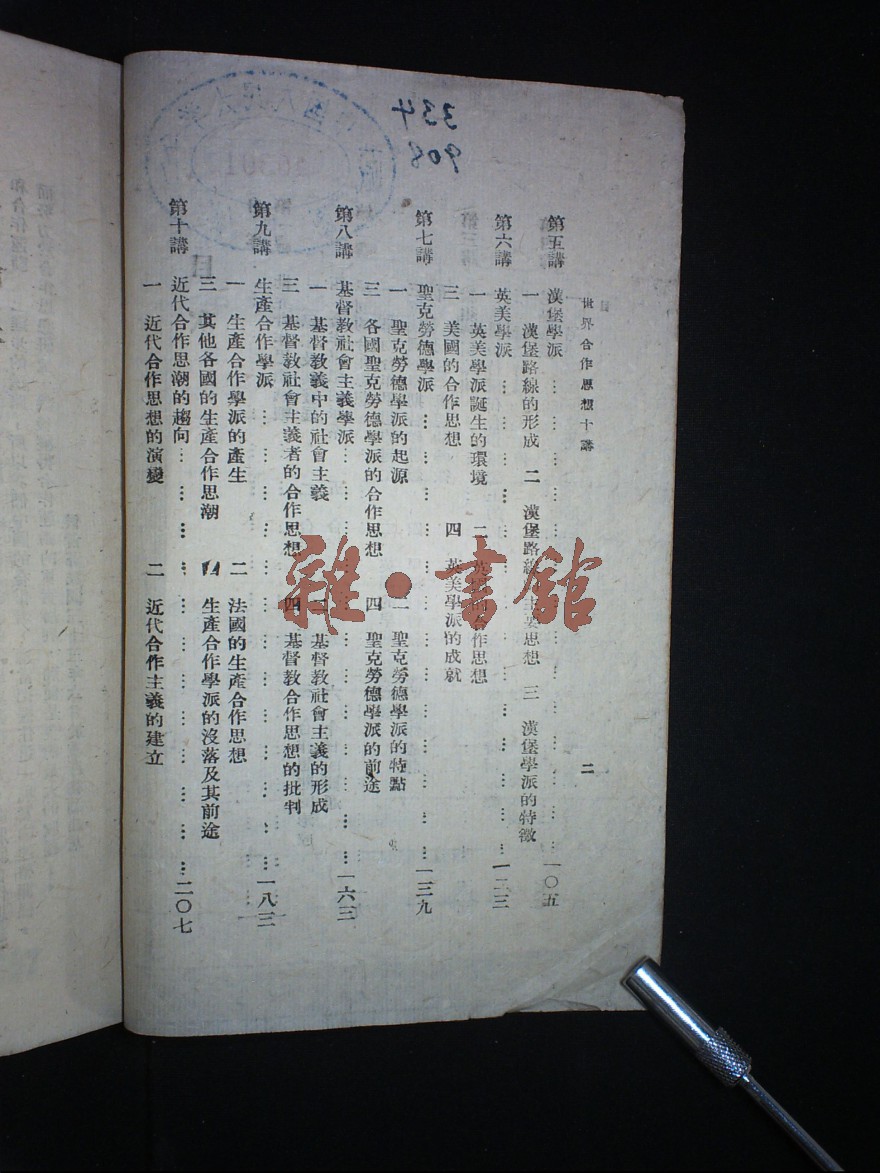 334
908
世界合作思想十講
二
第五講 漢堡學派 … … … … … … … … … … … … 一〇五
一 漢堡路線的形成 二 漢堡路線 主要思想 三 漢堡學派的特徵
第六講 英美學派 … … … … … … … … … … … … 一二三
一 英美學派誕生的環境 二 英 的合作思想
三 美國的合作思想 四 英美學派的成就
第七講 聖克勞德學派 … … … … … … … … … … 一三九
一 聖克勞德學派的起源 二 聖克勞德學派的特點
三 各國聖克勞德學派的合作思想 四 聖克勞德學派的前途
第八講 基督教社會主義學派 … … … … … … … … 一六三
一 基督教義中的社會主義 二 基督教社會主義的形成
三 基督教社會主義者的合作思想 四 基督教合作思想的批判
第九講 生產合作學派 … … … … … … … … … … 一八三
一 生產合作學派的產生 二 法國的生產合作思想
三 其他各國的生產合作思潮 四 生產合作學派的沒落及其前途
第十講 近代合作思潮的趨向 … … … … … … … … 二〇七
一 近代合作思想的演變 二 近代合作主義的建立
雜·書館